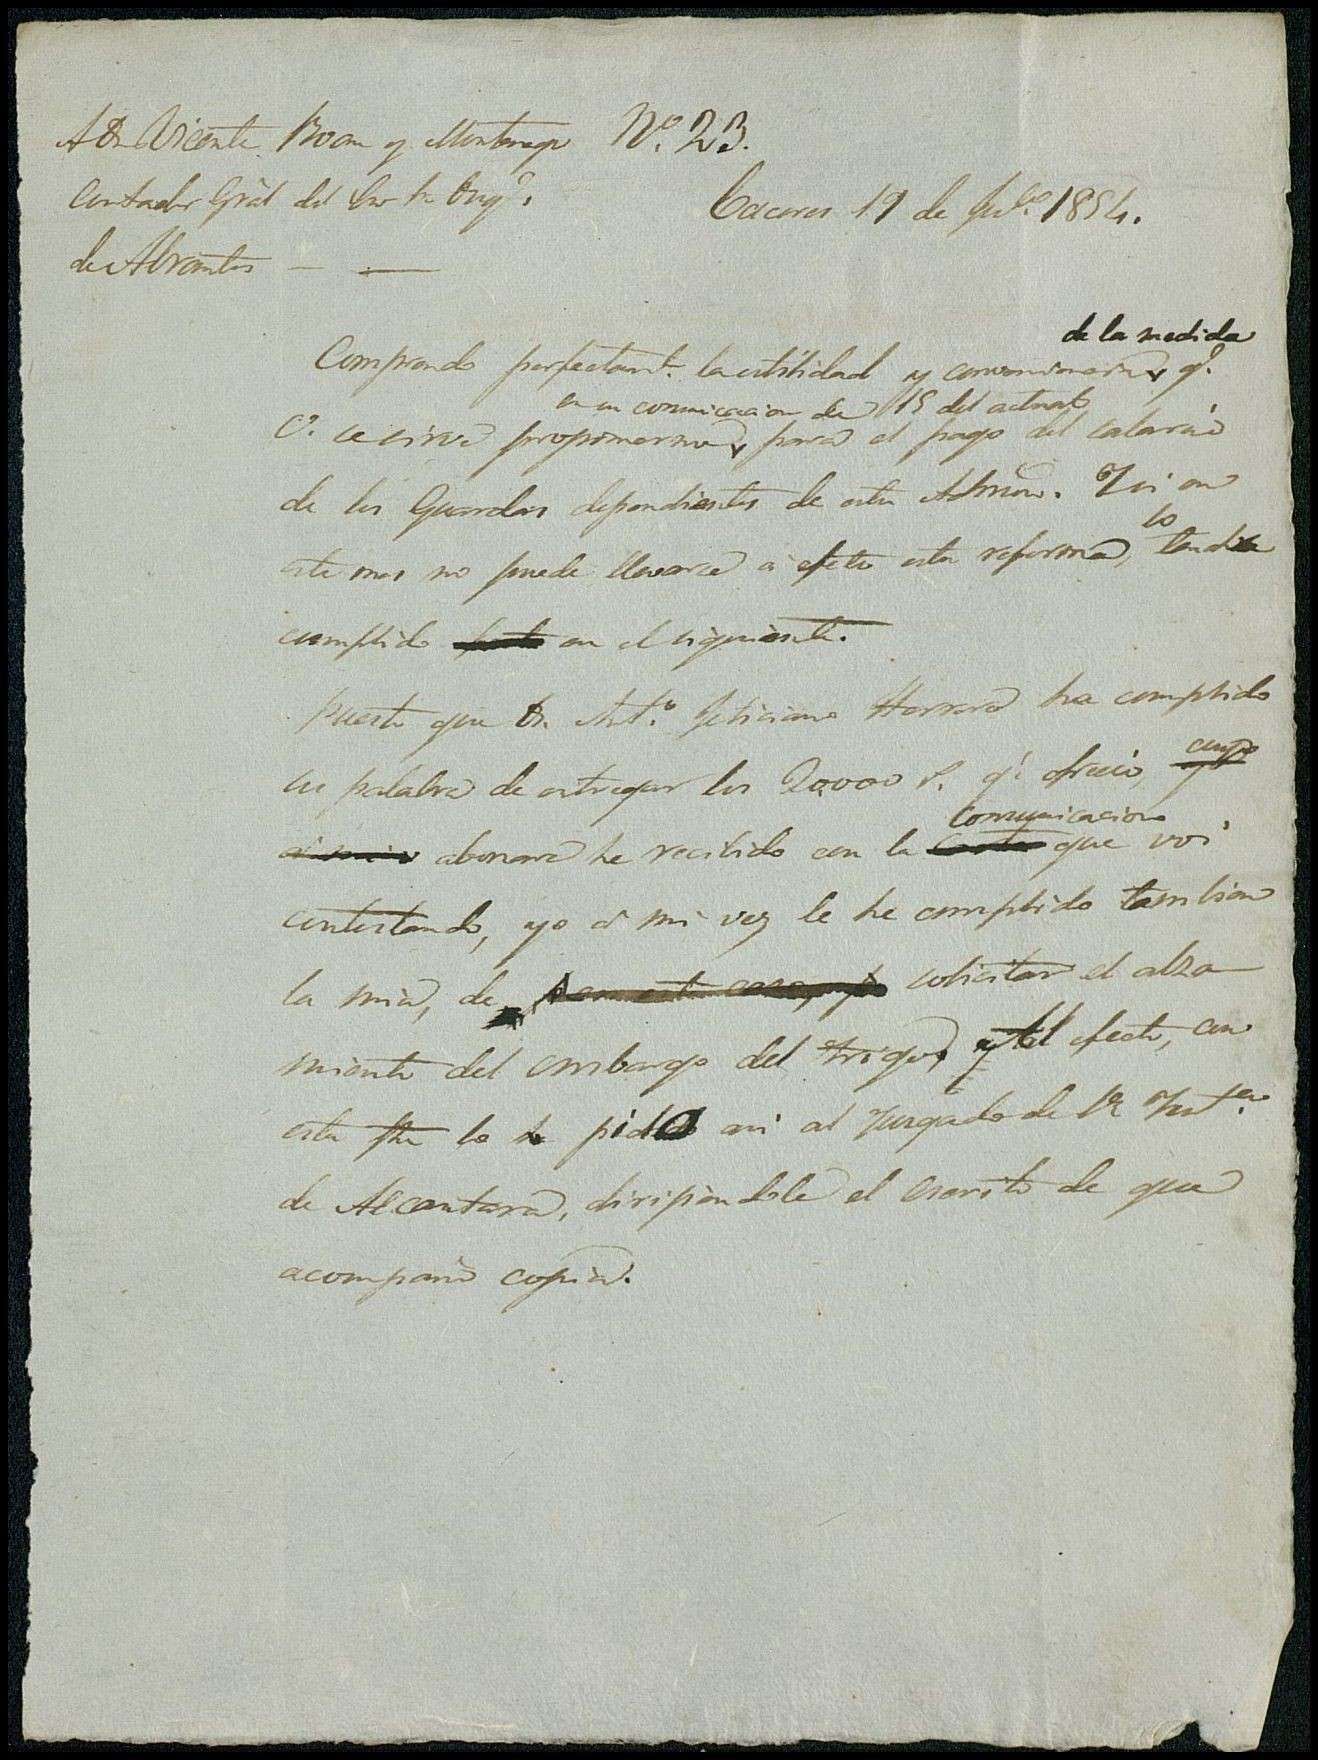 A Dn Vicente Boan y Montenegro Nº. 23.
Contador Gral del Duq.º
Caceres 19 de Jul.º 1854.
de Abrantes
de la medida
Comprendo perfectamt.e la utilidad y conveniencia q.e
en su comunicacion de 15 del actual
V. se sirve proponerme para el pago del salario
de los Guardas dependientes de esta Admon. Y si en
lo
este mes no puede llevarse a efeto esta reforma, tendra
cumplido en el siguiente.
Puesto que Dn. Ant.º Feliciano Herrera ha cumplido
cuyo
su palabra de entregar los 20,000 r. q.e ofrecio,
comunicacion
abonaré he recibido con la carta que voi
contestando, yo á mi vez le he cumplido tambien
la mia, de solicitar el alza
miento del embargo del trigo, y al efecto, con
esta fha lo pido asi al Juzgado de 1ª Inst.ª
de Alcantara, dirigiendole el escrito de que
acompaño copia.